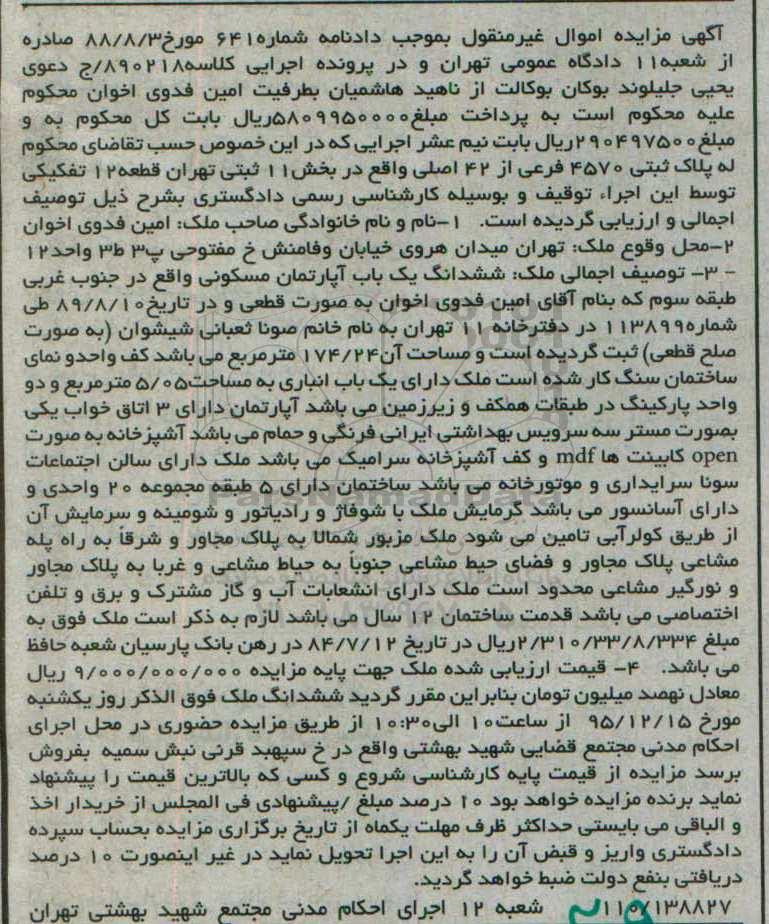 آگهی مزایده اموال غیرمنقول بموجب دادنامه شماره۶۴۱ مورخ۸۸/۸/۳ صادره
از شعبه۱۱ دادگاه عمومی تهران و در پرونده اجرایی کلاسه۸۹۰۲۱۸/ج دعوی
یحیی جلیلوند بوکان بوکالت از ناهید هاشمیان بطرفیت امین فدوی اخوان محکوم
علیه محکوم است به پرداخت مبلغ۵۸۰۹۹۵۰۰۰۰ریال بابت کل محکوم به و
مبلغ۲۹۰۴۹۷۵۰۰ریال بابت نیم عشر اجرایی که در این خصوص حسب تقاضای محکوم
له پلاک ثبتی ۴۵۷۰ فرعی از ۴۲ اصلی واقع در بخش۱۱ ثبتی تهران قطعه۱۲ تفکیکی
توسط این اجراء توقیف و بوسیله کارشناسی رسمی دادگستری بشرح ذیل توصیف
اجمالی و ارزیابی گردیده است. ۱-نام و نام خانوادگی صاحب ملک: امین فدوی اخوان
۲-محل وقوع ملک: تهران میدان هروی خیابان وفامنش خ مفتوحی پ۳ ط۳ واحد۱۲
- ۳- توصیف اجمالی ملک: ششدانگ یک باب آپارتمان مسکونی واقع در جنوب غربی
طبقه سوم که بنام آقای امین فدوی اخوان به صورت قطعی و در تاریخ۸۹/۸/۱۰ طی
شماره۱۱۳۸۹۹ در دفترخانه ۱۱ تهران به نام خانم صونا ثعبانی شیشوان (به صورت
صلح قطعی) ثبت گردیده است و مساحت آن۱۷۴/۲۴ مترمربع می باشد کف واحدو نمای
ساختمان سنگ کار شده است ملک دارای یک باب انباری به مساحت۵/۰۵ مترمربع و دو
واحد پارکینگ در طبقات همکف و زیرزمین می باشد آپارتمان دارای ۳ اتاق خواب یکی
بصورت مستر سه سرویس بهداشتی ایرانی فرنگی و حمام می باشد آشپزخانه به صورت
open کابینت ها mdf و کف آشپزخانه سرامیک می باشد ملک دارای سالن اجتماعات
سونا سرایداری و موتورخانه می باشد ساختمان دارای ۵ طبقه مجموعه ۲۰ واحدی و
دارای آسانسور می باشد گرمایش ملک با شوفاژ و رادیاتور و شومینه و سرمایش آن
از طریق کولرآبی تامین می شود ملک مزبور شمالا به پلاک مجاور و شرقاً به راه پله
مشاعی پلاک مجاور و فضای حیط مشاعی جنوباً به حیاط مشاعی و غربا به پلاک مجاور
و نورگیر مشاعی محدود است ملک دارای انشعابات آب و گاز مشترک و برق و تلفن
اختصاصی می باشد قدمت ساختمان ۱۲ سال می باشد لازم به ذکر است ملک فوق به
مبلغ ۲/۳۱۰/۳۳/۸/۳۳۴ریال در تاریخ ۸۴/۷/۱۲ در رهن بانک پارسیان شعبه حافظ
می باشد. ۴- قیمت ارزیابی شده ملک جهت پایه مزایده ۹/۰۰۰/۰۰۰/۰۰۰ ریال
معادل نهصد میلیون تومان بنابراین مقرر گردید ششدانگ ملک فوق الذکر روز یکشنبه
مورخ ۹۵/۱۲/۱۵ از ساعت۱۰ الی۱۰:۳۰ از طریق مزایده حضوری در محل اجرای
احکام مدنی مجتمع قضایی شهید بهشتی واقع در خ سپهبد قرنی نبش سمیه بفروش
برسد مزایده از قیمت پایه کارشناسی شروع و کسی که بالاترین قیمت را پیشنهاد
نماید برنده مزایده خواهد بود ۱۰ درصد مبلغ /پیشنهادی فی المجلس از خریدار اخذ
و الباقی می بایستی حداکثر ظرف مهلت یکماه از تاریخ برگزاری مزایده بحساب سپرده
دادگستری واریز و قبض آن را به این اجرا تحویل نماید در غیر اینصورت ۱۰ درصد
دریافتی بنفع دولت ضبط خواهد گردید.
شعبه ۱۲ اجرای احکام مدنی مجتمع شهید بهشتی تهران
ParsNamadData